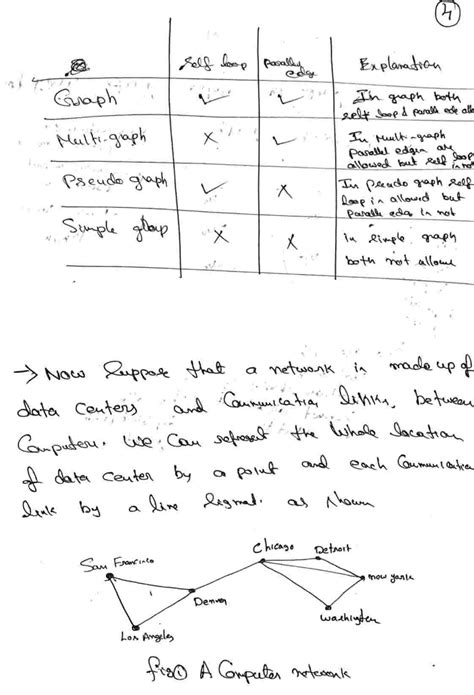 4
Self loop Parally edge Explanation
Graph ✓ ✓ In graph both self loop & parallel edge allo
Multi-graph × ✓ In Multi-graph Parallel edges are allowed but self loop is not
Pseudo graph ✓ × In Pseudo graph self loop is allowed but Parallel edge is not
Simple graph × × in simple graph both not allowe
→ Now Suppose that a network is made up of
data centers and Communication links, between
Computers. We Can represent the whole location
of data center by a point and each Communication
link by a line Sigment. as shown
Chicago Detroit
San Francisco
New york
Denver
Washington
Los Angeles
fig ① A Computer network